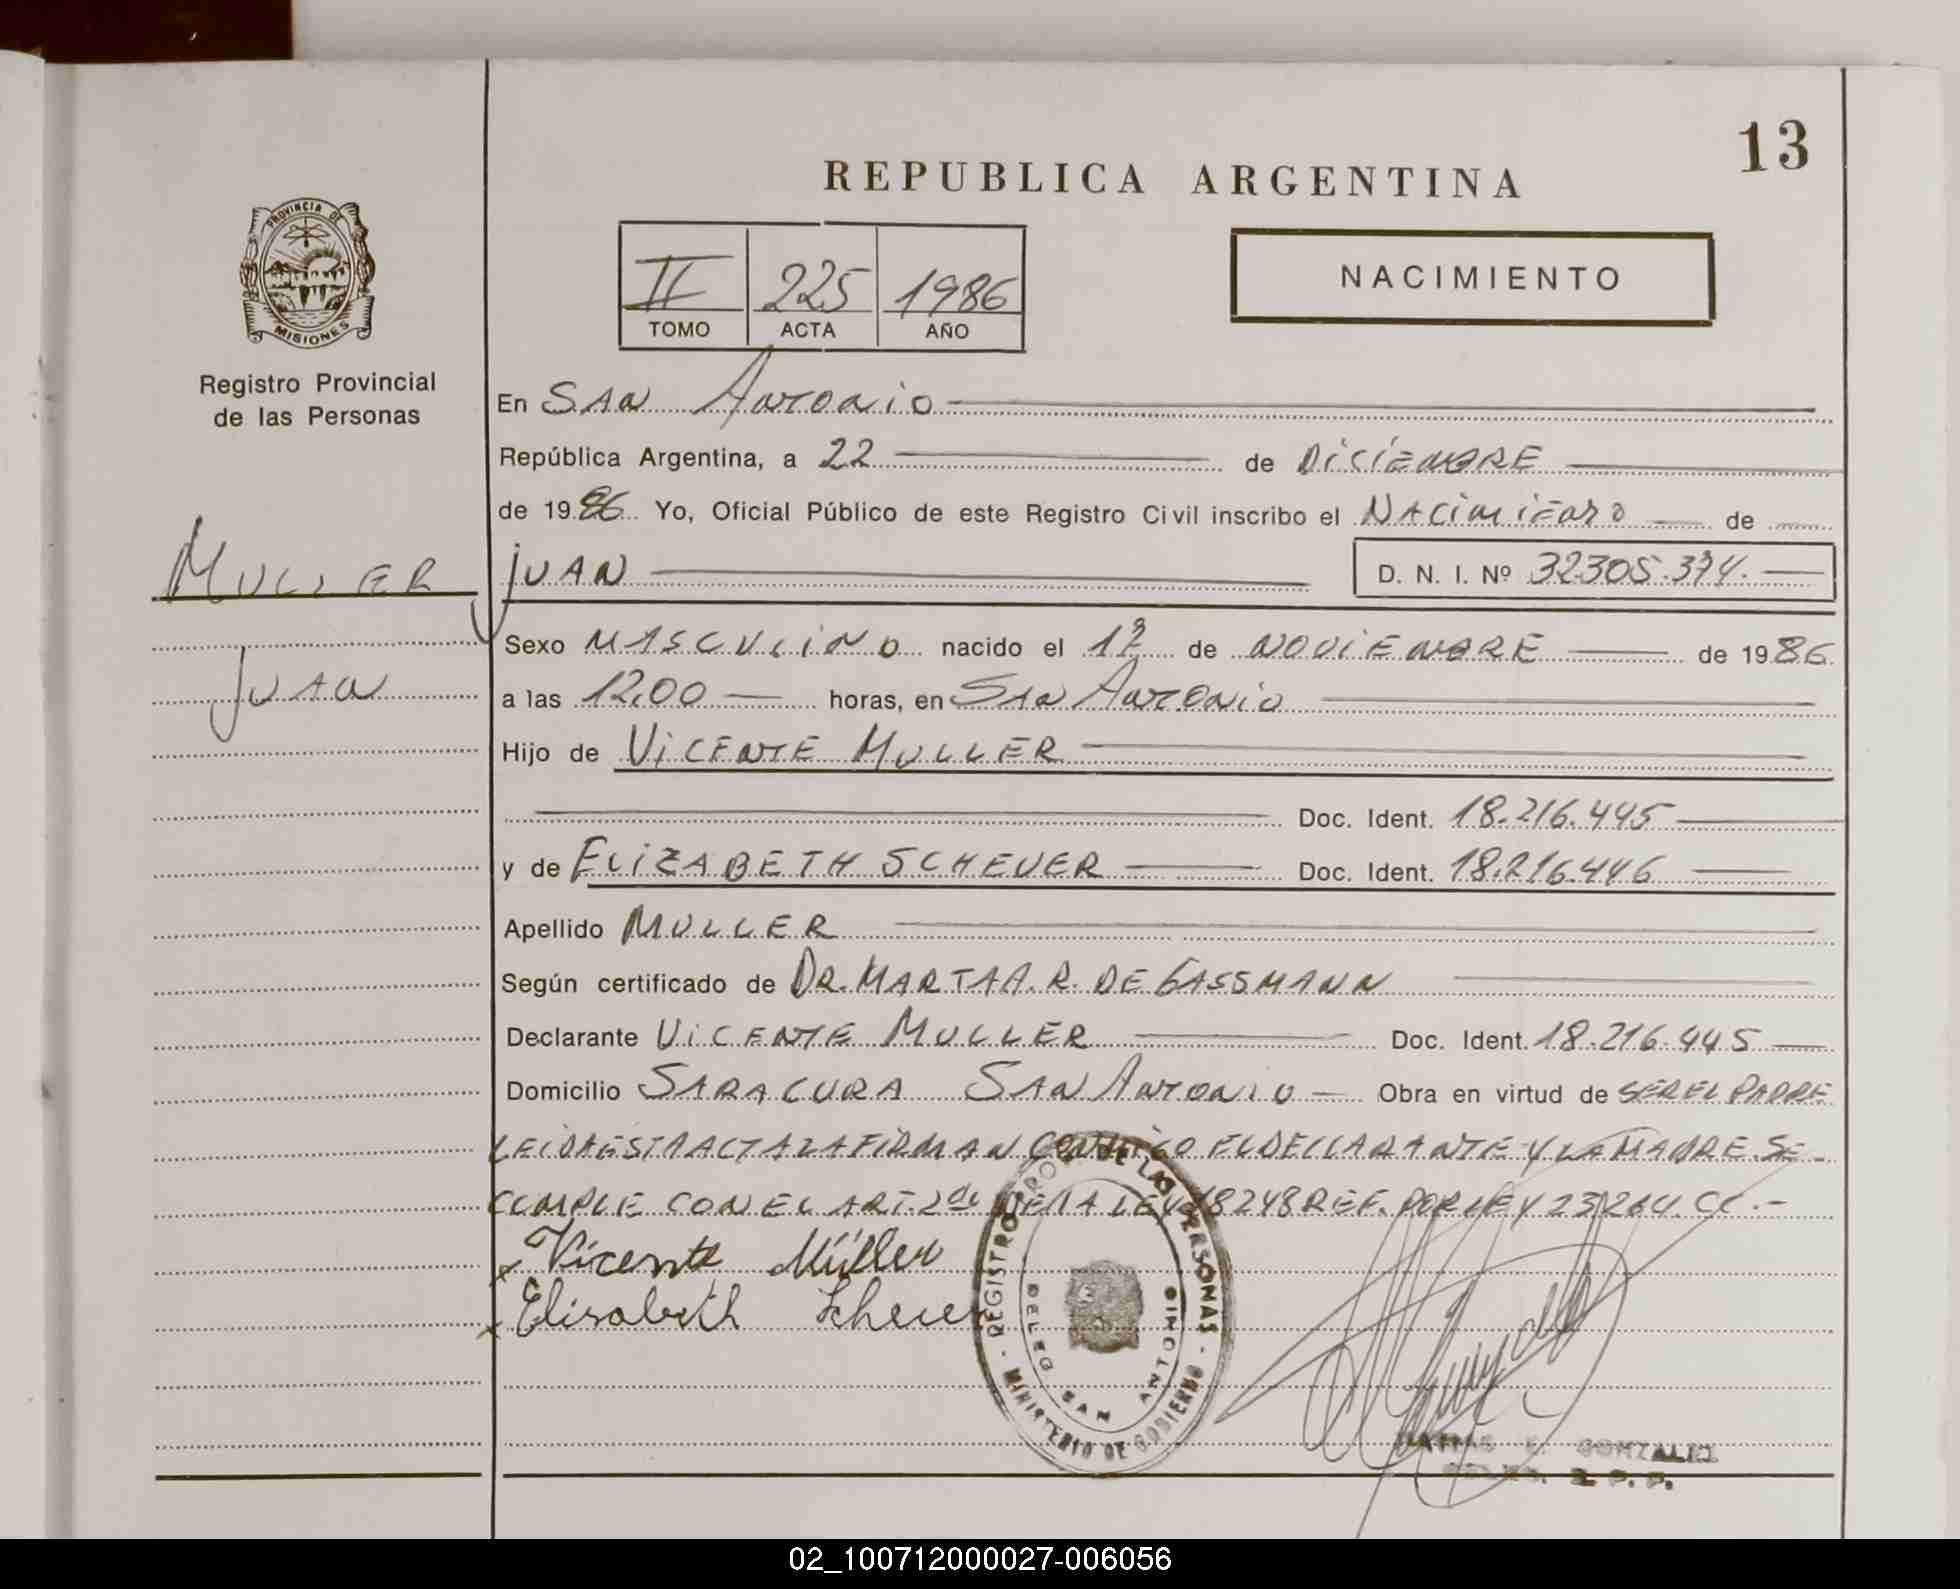 13
REPUBLICA ARGENTINA
II 225 1986
TOMO ACTA AÑO
NACIMIENTO
PROVINCIA DE
MISIONES
Registro Provincial
de las Personas
MULLER
JUAN
En SAN ANTONIO
República Argentina, a 22 de DICIEMBRE
de 1986 Yo, Oficial Público de este Registro Civil inscribo el NACIMIENTO de
JUAN D. N. I. Nº 32.305.374.
Sexo MASCULINO nacido el de NOVIEMBRE de 1986
a las 12,00 horas, en SAN ANTONIO
Hijo de VICENTE MULLER
Doc. Ident. 18.216.445
y de ELIZABETH SCHEUER Doc. Ident. 18.216.446
Apellido MULLER
Según certificado de DR. MARTA A. R. DE GASSMANN
Declarante VICENTE MULLER Doc. Ident. 18.216.445
Domicilio SARACURA SAN ANTONIO Obra en virtud de SER EL PADRE
LEIDA ESTA ACTA LA FIRMAN CONMIGO EL DECLARANTE Y LA MADRE. SE
CUMPLE CON EL ART. 2do DE LA LEY 18248 REF. POR LEY 23264. CC.-
x Vicente Müller
x Elisabeth Scheuer
REGISTRO PROV. DE LAS PERSONAS
DELEG SAN ANTONIO
MINISTERIO DE GOBIERNO
E. GONZALEZ
R. P. P.
02_100712000027-006056